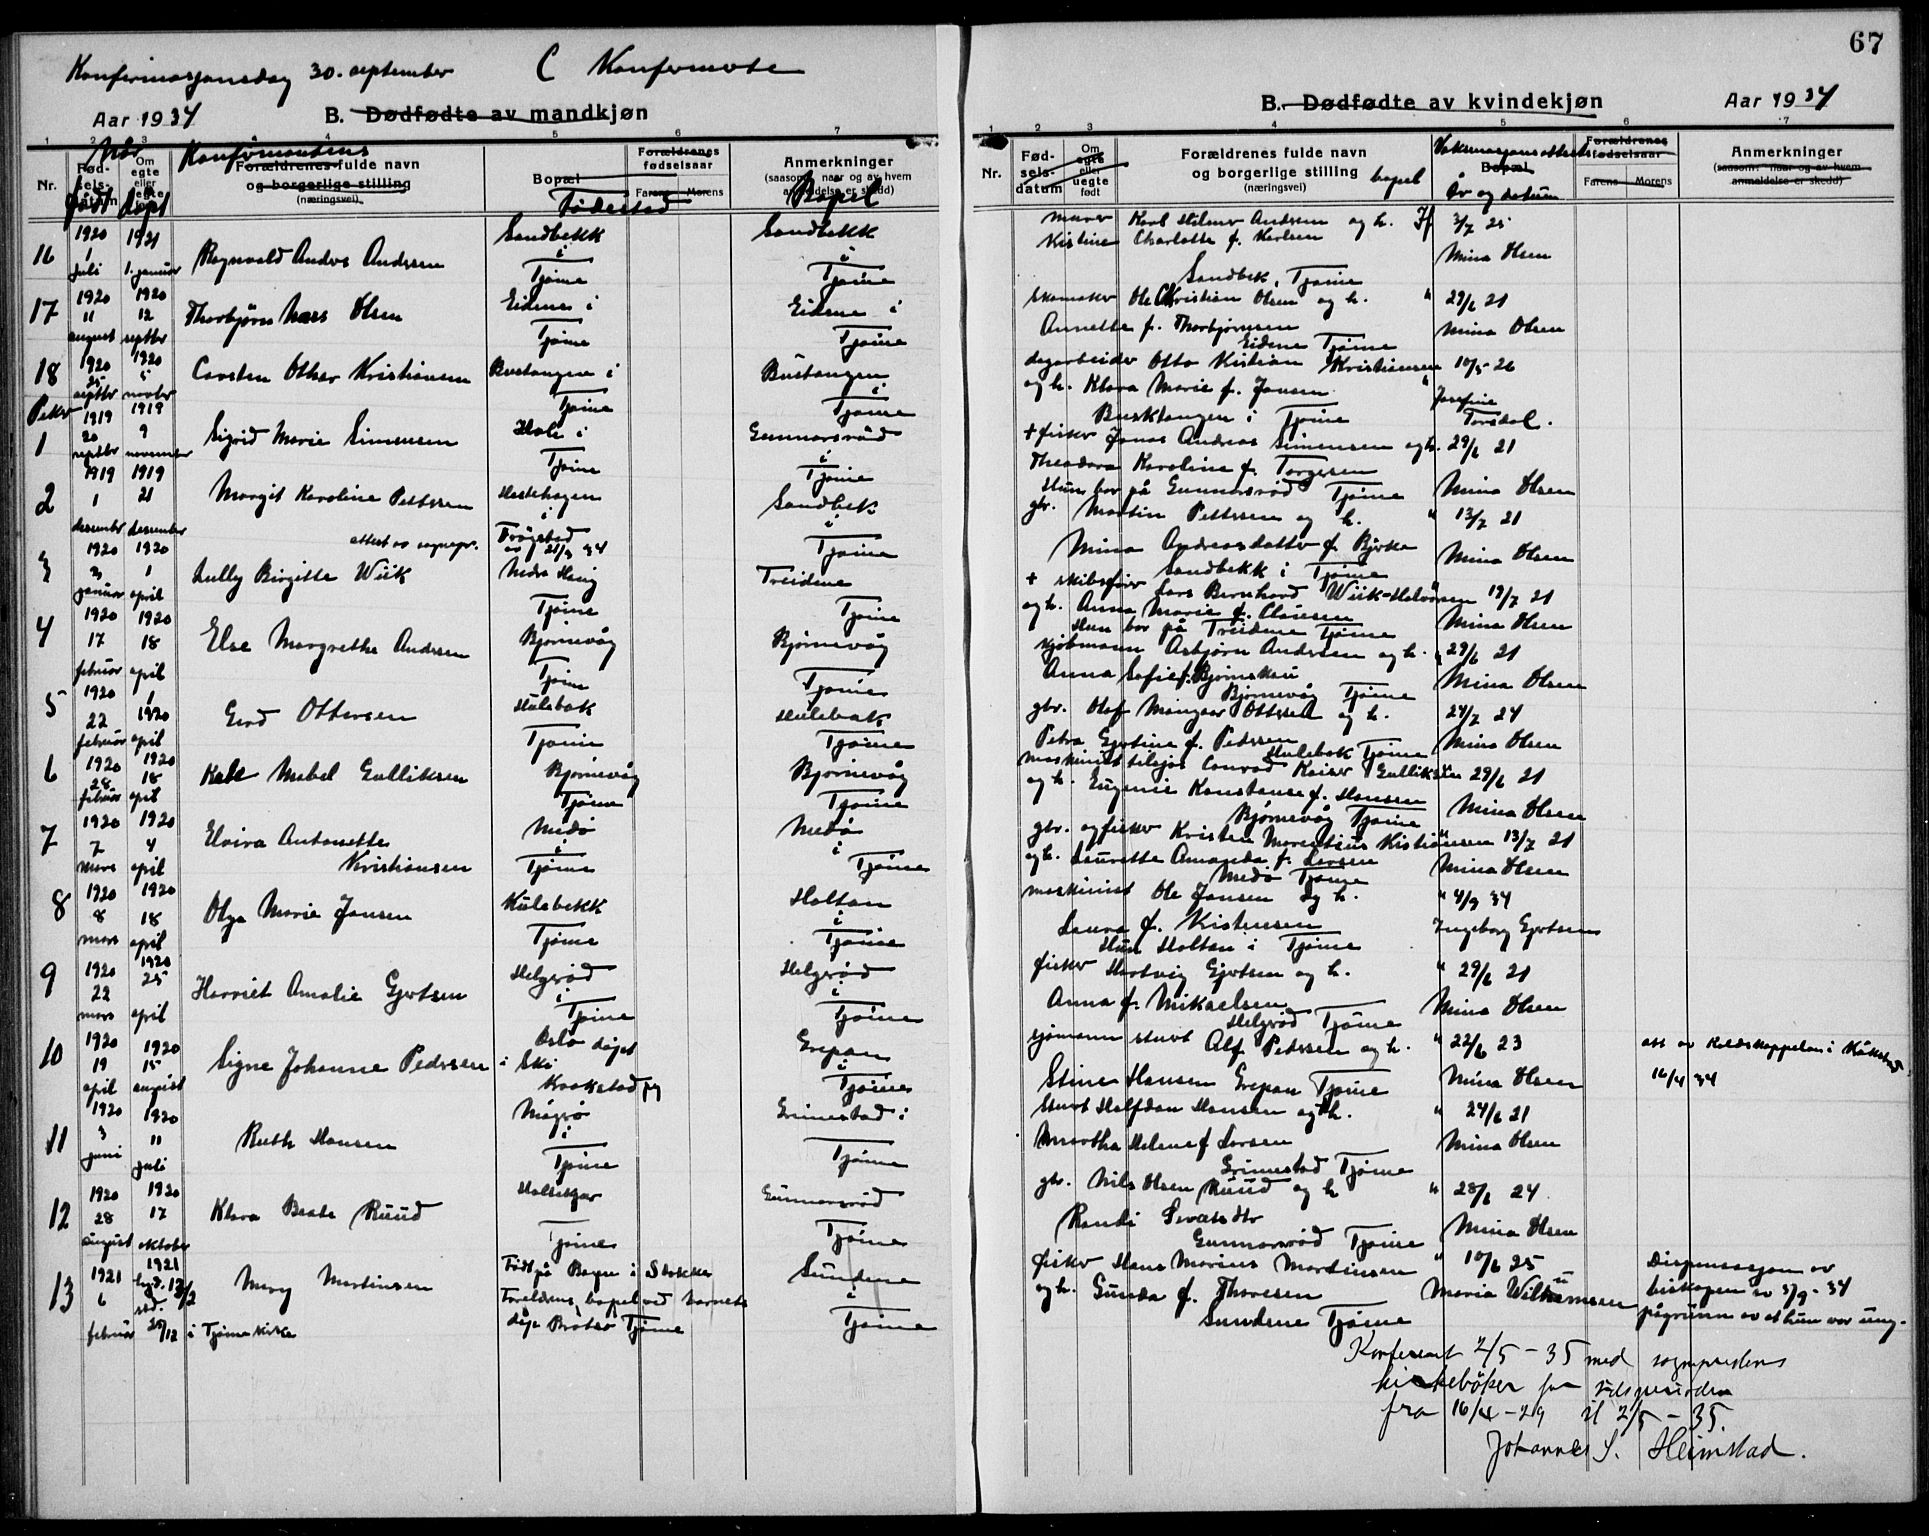 67
Konfirmasjonsdag 30. september C Konfirmerte
Aar 1934 B. Dødfødte av mandkjøn
1 2 3 4 5 6 7
Nr. Fødselsdatum Om egte eller uegte født Forældrenes fulde navn og borgerlige stilling (næringsvei) Bopæl Forældrenes fødselsaar Farens Morens Anmerkninger (saasom: naar og av hvem anmeldelse er skedd)
Når født døpt Konfirmantens Fødested Bopel
16 1920 1 juli 1921 1. januar Ragnvald Anders Andersen Sandbekk i Tjøme Sandbekk i Tjøme
17 1920 11 august 1920 12 septbr Thorbjørn Olsen Eidene i Tjøme Eidene i Tjøme
18 1920 25 septbr 1920 5 novbr Carsten Other Kristiansen Bustangen i Tjøme Bustangen i Tjøme
Piker
1 1919 20 septbr 1919 9 november Sigrid Marie Simensen Hole i Tjøme Gunnarsrød i Tjøme
2 1919 1 desembr 1919 21 desember Margit Karoline Pettersen Hestehagen i Trøgstad Sandbek i Tjøme
attest av sognepr. av 21/9 34
3 1920 3 januar 1920 1 april Lully Birgitte Wiik Nedre Haug Tjøme Treidene Tjøme
4 1920 17 februar 1920 18 april Else Margrethe Andersen Bjørnevåg Tjøme Bjørnevåg Tjøme
5 1920 22 februar 1 1920 april Gerd Ottersen Hulebak Tjøme Hulebak Tjøme
6 1920 28 februar 1920 18 april Mabel Gulliksen Bjørnevåg Tjøme Bjørnevåg Tjøme
7 1920 7 mars 1920 4 april Elvira Antonette Kristiansen Medø i Tjøme Medø i Tjøme
8 1920 8 mars 1920 18 april Olga Marie Jansen Hulebekk Tjøme Holtan i Tjøme
9 1920 22 mars 1920 25 april Harriet Amalie Gjertsen Helgerød i Tjøme Helgerød i Tjøme
10 1920 19 april 1920 15 august Signe Johanne Pedersen Oslo døpt i Ski Kråkstad Grepan i Tjøme
11 1920 3 juni 1920 11 juli Ruth Hansen Mågerø i Tjøme Grimestad i Tjøme
12 1920 28 august 1920 17 oktober Klara Beate Ruud Holtekjær Tjøme Gunnarsrød Tjøme
13 1921 6 februar 1921 13/2 26/12 i Tjøme kirke Mary Martinsen Født på Bogen i Stokke Foreldrenes bopel ved barnets dåp Brøtsø Tjøme Sundene i Tjøme
B. Dødfødte av kvindekjøn Aar 1934
1 2 3 4 5 6 7
Nr. Fødselsdatum Om egte eller uegte født Forældrenes fulde navn og borgerlige stilling (næringsvei) Bopæl Forældrenes fødselsaar Farens Morens Anmerkninger (saasom: naar og av hvem anmeldelse er skedd)
bopel Vaksinasjonsattest Av og datum
murer Karl Hilmar Andersen og h. Kristine Charlotte f. Karlsen Sandbek, Tjøme 3/7 25 Mina Olsen
skomaker Ole Christian Olsen og h. Annette f. Thorbjørnsen Eidene Tjøme " 29/6 21 Mina Olsen
dagarbeider Otto Kristian Kristiansen og h. Klara Marie f. Jansen Busktangen i Tjøme 10/5 26 " Josefine Torsdal.
+ fisker Jonas Andreas Simensen og h. Theodora Karoline f. Torgersen Hun bor på Gunnarsrød Tjøme 29/6 21 Mina Olsen
gbr. Martin Pettersen og h. Mina Andreasdatter f. Bjerke Sandbekk i Tjøme " 13/7 21 Mina Olsen
+ skibsfører Lars Bernhard Wiik-Halvorsen og h. Anna Marie f. Clausen Hun bor på Treidene Tjøme " 19/7 21 Mina Olsen
kjøbmann Asbjørn Andersen og h. Anna Sofie f. Bjørnskau Bjørnevåg Tjøme " 29/6 21 Mina Olsen
gbr. Olaf Mangaar Ottersen og h. Petra Gjertine f. Pedersen Hulebak Tjøme 24/7 24 Mina Olsen
maskinist Conrad Keiser Gulliksen og h. Eugenie Konstanse f. Hansen Bjørnevåg Tjøme 29/6 21 Mina Olsen
gbr. og fisker Kristen Marentius Kristiansen og h. Laurette Amanda f. Larsen Medø Tjøme " 13/7 21 Mina Olsen
maskinist Ole Jansen og h. Laura f. Kristensen Hun Holtan i Tjøme " 4/9 34 Ingeborg Gjertsen
fisker Hartvig Gjertsen og h. Anna f. Mikaelsen Helgerød Tjøme " 29/6 21 Mina Olsen
sjømann Alf Pedersen og h. Stine Hansen Grepan Tjøme " 22/6 23 Mina Olsen att. av Kråkstad 16/4 34
Halfdan Hansen og h. Martha Helene f Larsen Grimestad Tjøme " 24/6 21 Mina Olsen
gbr. Nils Olsen Ruud og h Randi Gunnarsrød Tjøme " 28/6 24 Mina Olsen
fisker Hans Marius Martinsen og h. Gunda f. Thoresen Sundene Tjøme " 10/6 25 Maria Wilhelmsen Dispensasjon av biskopen av 3/9-34 på grunn av at hun var ung.
Konferert 2/5-35 med sogneprestens
kirkebøker for tidsperioden
fra 16/4-29 til 2/5-35.
Johannes S. Heimstad.